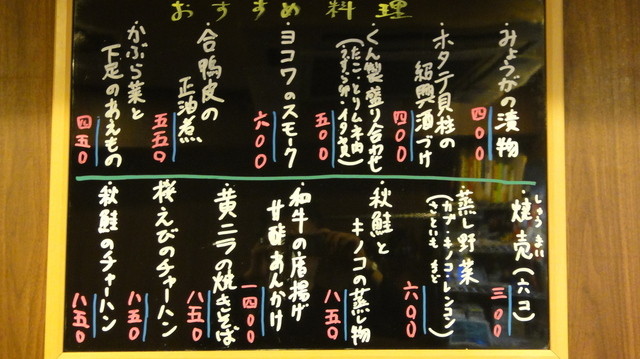 おすすめ料理
・みょうがの漬物
四〇〇
・ホタテ貝柱の
紹興酒づけ
四〇〇
・くん製盛り合わせ
(たこ・とりムネ肉
うずら卵・イタ貝)
五〇〇
・ヨコワのスモーク
六〇〇
・合鴨皮の
正油煮
五五〇
・かぶら菜と
下足のあえもの
四五〇
・焼売(六コ)
しゅうまい
三〇〇
・蒸し野菜
(カブ・キノコ・レンコン
さといも など)
六〇〇
・秋鮭と
キノコの蒸し物
八五〇
・和牛の唐揚げ
甘酢あんかけ
一四〇〇
・黄ニラの焼きそば
八五〇
・桜えびのチャーハン
八五〇
・秋鮭のチャーハン
八五〇